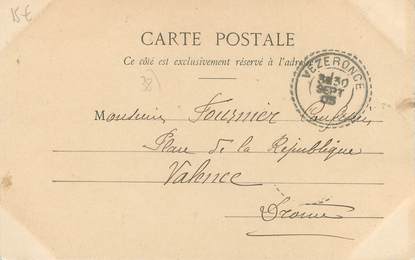 15 €
CARTE POSTALE
Ce côté est exclusivement réservé à l'adresse
VÉZERONCE
30
SEPT
05
38
Monsieur Fournier
Place de la République
Valence
Drôme